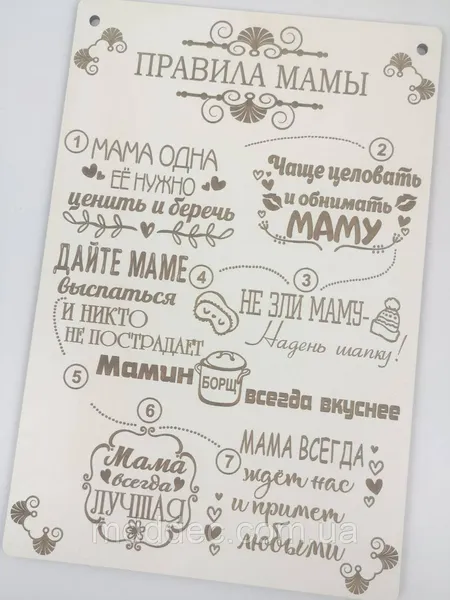 ПРАВИЛА МАМЫ
1
МАМА ОДНА
ЕЁ НУЖНО
ценить и беречь
2
Чаще целовать
и обнимать
МАМУ
3
НЕ ЗЛИ МАМУ-
Надень шапку!
4
ДАЙТЕ МАМЕ
выспаться
И НИКТО
НЕ ПОСТРАДАЕТ
5
Мамин БОРЩ всегда вкуснее
6
Мама
всегда
ЛУЧШАЯ
7
МАМА ВСЕГДА
ждёт нас
и примет
любыми